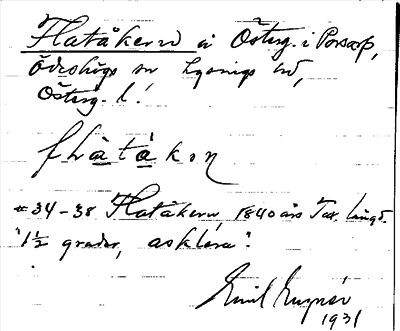 Flatåkern å Österg. i Porsarp,
Ödeshögs sn Lysings hd,
Österg. l.
flàtåkəɳ
#34-38 Flatåkern 1840 års Tax. längd.
"1½ grader, asklera".
Emil
1931